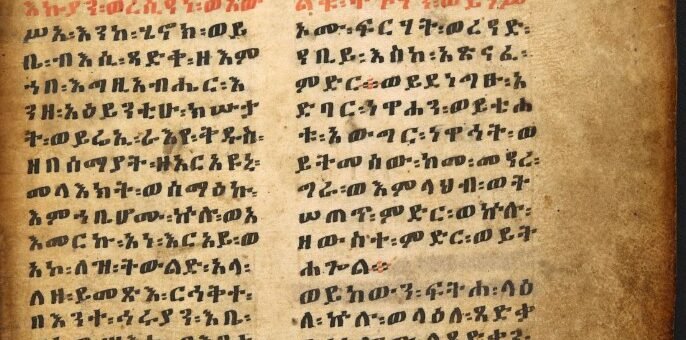 ሥአ፡እንከ፡ሄኖክ፡ወይ
ቤ፡ብእሲ፡ጻድቅ፡ዘእም
ኀበ፡እግዚአብሔር፡እ
ንዘ፡አዕይንቲሁ፡ክሡታ
ት፡ወይሬኢ፡ራእየ፡ቅዱስ፡
ዘበሰማያት፡ዘአርአዩኒ፡
መላእክት፡ወሰማዕኩ፡
እምኀቤሆሙ፡ኵሉ፡ወአ
እመርኩ፡አነ፡እርአይ፡ወ
አኮ፡ለዝ፡ትውልድ፡አላ፡
ለዘ፡ይመጽእ፡ርኅቅት፡
በእንተ፡ኅሩያን፡እቤ፡
አሙ፡ፍርሃት፡ወረዓድ፡
ዓቢይ፡እስከ፡አጽናፈ፡
ምድር።ወይደነግፁ፡አ
ድባር፡ነዋሐን፡ወይቴሐ
ቱ፡አውግር፡ነዋኃት፡ወ
ይትመሰው፡ከመ፡መዓረ፡
ግራ፡ወእምላህብ፡ወት
ሠጠም፡ምድር፡ወኵሉ፡
ዘውስተ፡ምድር፡ወይት
ሐጐል።
ወይከውን፡ፍትሐ፡ላዕ
ለ፡ኵሉ፡ወላዕለ፡ጻድቃ